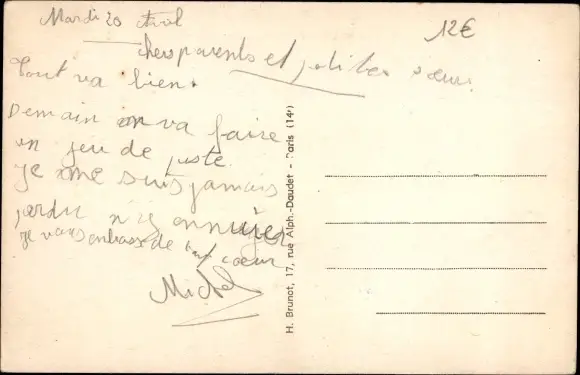 Mardi 20 Avril
12€
chers parents et petites sœur
Tout va bien.
Demain on va faire
un jeu de piste
je me suis jamais
perdu n'y ennuyer
je vous embrasse de tout cœur
Michel
H. Brunot, 17, rue Alph.-Daudet - Paris (14e)